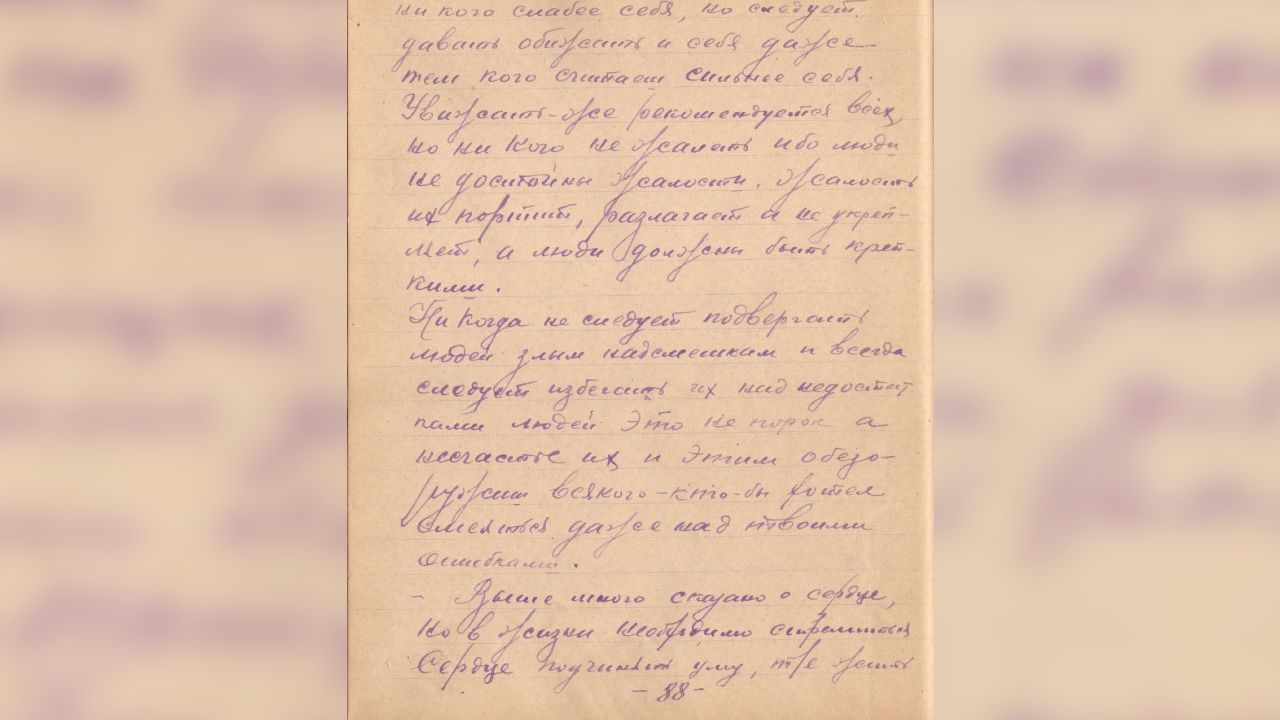 ни кого слабее себя, но следует
давать обижать и себя даже
тем кого считаеш сильнее себя.
Увижать-же рекомендуется всех,
но ни кого не жалеть ибо люди
не достойны жалости. Жалость
их портит, разлагает а не укреп-
ляет, а люди должны быть креп-
кими.
Ни когда не следует подвергать
людей злым надсмешкам и всегда
следует избегать их над недостат
ками людей Это не порок а
несчастье их и этим обезо-
ружиш всякого-кто-бы хотел
смеяться даже над твоими
ошибками.
- Выше много сказано о сердце,
но в жизни необходимо стремиться
Сердце подчинять уму, т/е жить
- 88 -